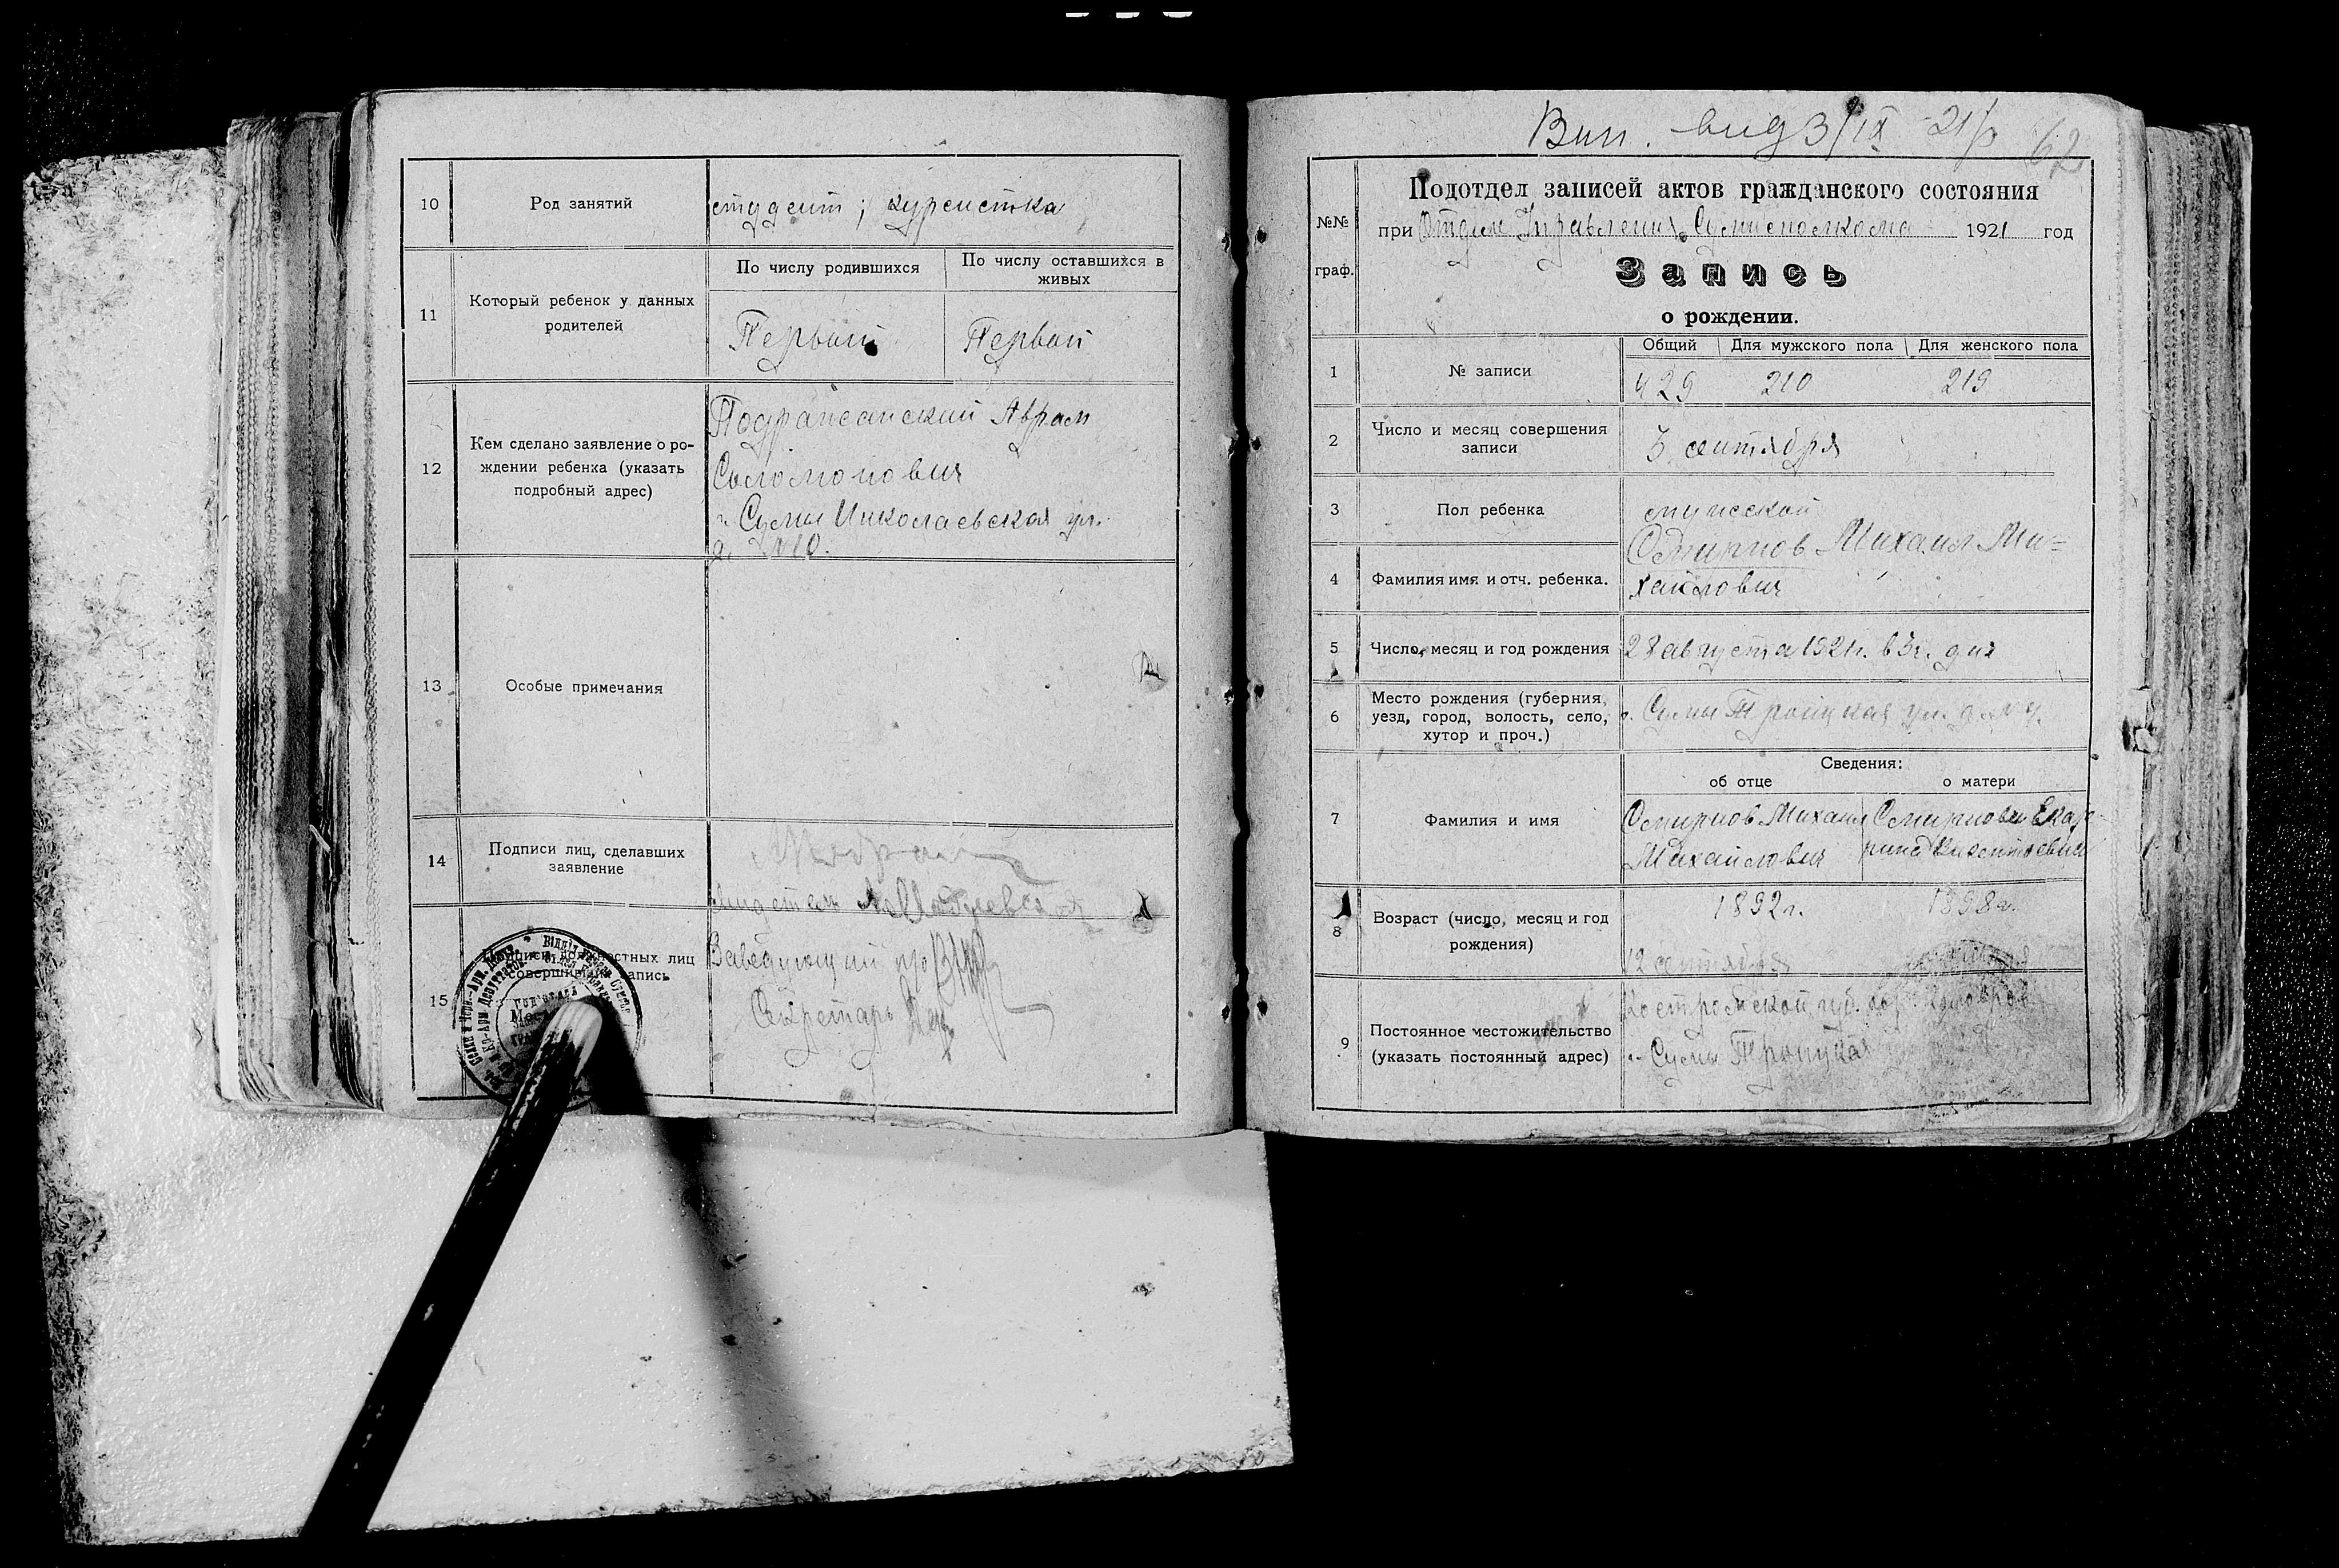 10 Род занятий студент; курсистка
11 Который ребенок у данных родителей
По числу родившихся По числу оставшихся в живых
Первый Первый
12 Кем сделано заявление о ро-
ждении ребенка (указать
подробный адрес)
Подражанский Аврам
Соломонович
г. Сумы Николаевская ул.
д. №10.
13 Особые примечания
14 Подписи лиц, сделавших
заявление
15 Подписи должностных лиц
совершивших запись
Заведующий
Секретарь
Вип. вид 3/IX 21 р 62
Подотдел записей актов гражданского состояния
№№ граф.
при Отделе Управления Сумисполкома 1921 год
Запись
о рождении.
Общий Для мужского пола Для женского пола
1 № записи 429 210 219
2 Число и месяц совершения
записи
3 сентября
3 Пол ребенка мужской
4 Фамилия имя и отч. ребенка.
Смирнов Михаил Ми-
хайлович
5 Число, месяц и год рождения 28 августа 1921г. в 3ч. дня
6 Место рождения (губерния,
уезд, город, волость, село,
хутор и проч.)
г. Сумы Троицкая ул.
Сведения:
об отце о матери
7 Фамилия и имя
Смирнов Михаил
Михайлович
Смирнова Екате-
рина Викентьевна
8 Возраст (число, месяц и год
рождения)
1892г. 1898г.
12 сентября
9 Постоянное местожительство
(указать постоянный адрес)
Костромской губ.
г. Сумы Троицкая